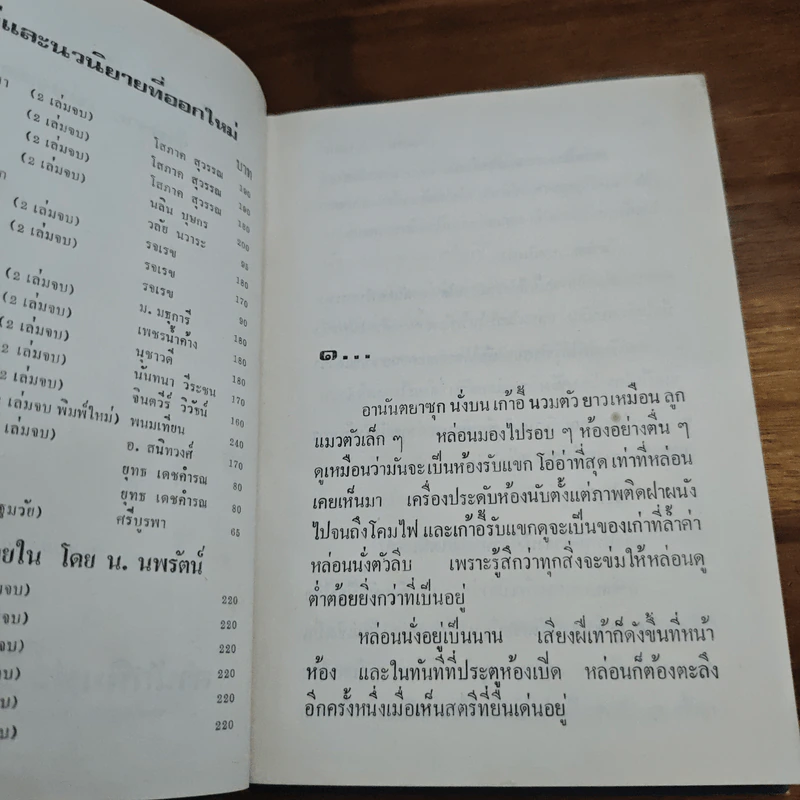 และนวนิยายที่ออกใหม่
บาท
(2 เล่มจบ) โสภาค สุวรรณ 190
(2 เล่มจบ) โสภาค สุวรรณ 190
(2 เล่มจบ) โสภาค สุวรรณ 180
(2 เล่มจบ) นลิน บุษกร 200
วลัย นวาระ 95
(2 เล่มจบ) รจเรข 180
(2 เล่มจบ) รจเรข 170
รจเรข 90
(2 เล่มจบ) ม. มธุการี 180
(2 เล่มจบ) เพชรน้ำค้าง 180
(2 เล่มจบ) นุชาวดี 180
(2 เล่มจบ) นันทนา วีระชน 170
(2 เล่มจบ) จินตวีร์ วิวัธน์ 160
เล่มจบ พิมพ์ใหม่) พนมเทียน 240
เล่มจบ) อ. สนิทวงศ์ 170
ยุทธ เดชคำรณ 80
ยุทธ เดชคำรณ 80
ฐมวัย) ศรีบูรพา 65
ยใน โดย น. นพรัตน์
มจบ) 220
จบ) 220
จบ) 220
บ) 220
บ) 220
บ) 220
๑...
อานันตยาซุก นั่งบน เก้าอี้ นวมตัว ยาวเหมือน ลูก
แมวตัวเล็ก ๆ หล่อนมองไปรอบ ๆ ห้องอย่างตื่น ๆ
ดูเหมือนว่ามันจะเป็นห้องรับแขก โอ่อ่าที่สุด เท่าที่หล่อน
เคยเห็นมา เครื่องประดับห้องนับตั้งแต่ภาพติดฝาผนัง
ไปจนถึงโคมไฟ และเก้าอี้รับแขกดูจะเป็นของเก่าที่ล้ำค่า
หล่อนนั่งตัวลีบ เพราะรู้สึกว่าทุกสิ่งจะข่มให้หล่อนดู
ต่ำต้อยยิ่งกว่าที่เป็นอยู่
หล่อนนั่งอยู่เป็นนาน เสียงฝีเท้าก็ดังขึ้นที่หน้า
ห้อง และในทันทีที่ประตูห้องเปิด หล่อนก็ต้องตะลึง
อีกครั้งหนึ่งเมื่อเห็นสตรีที่ยืนเด่นอยู่